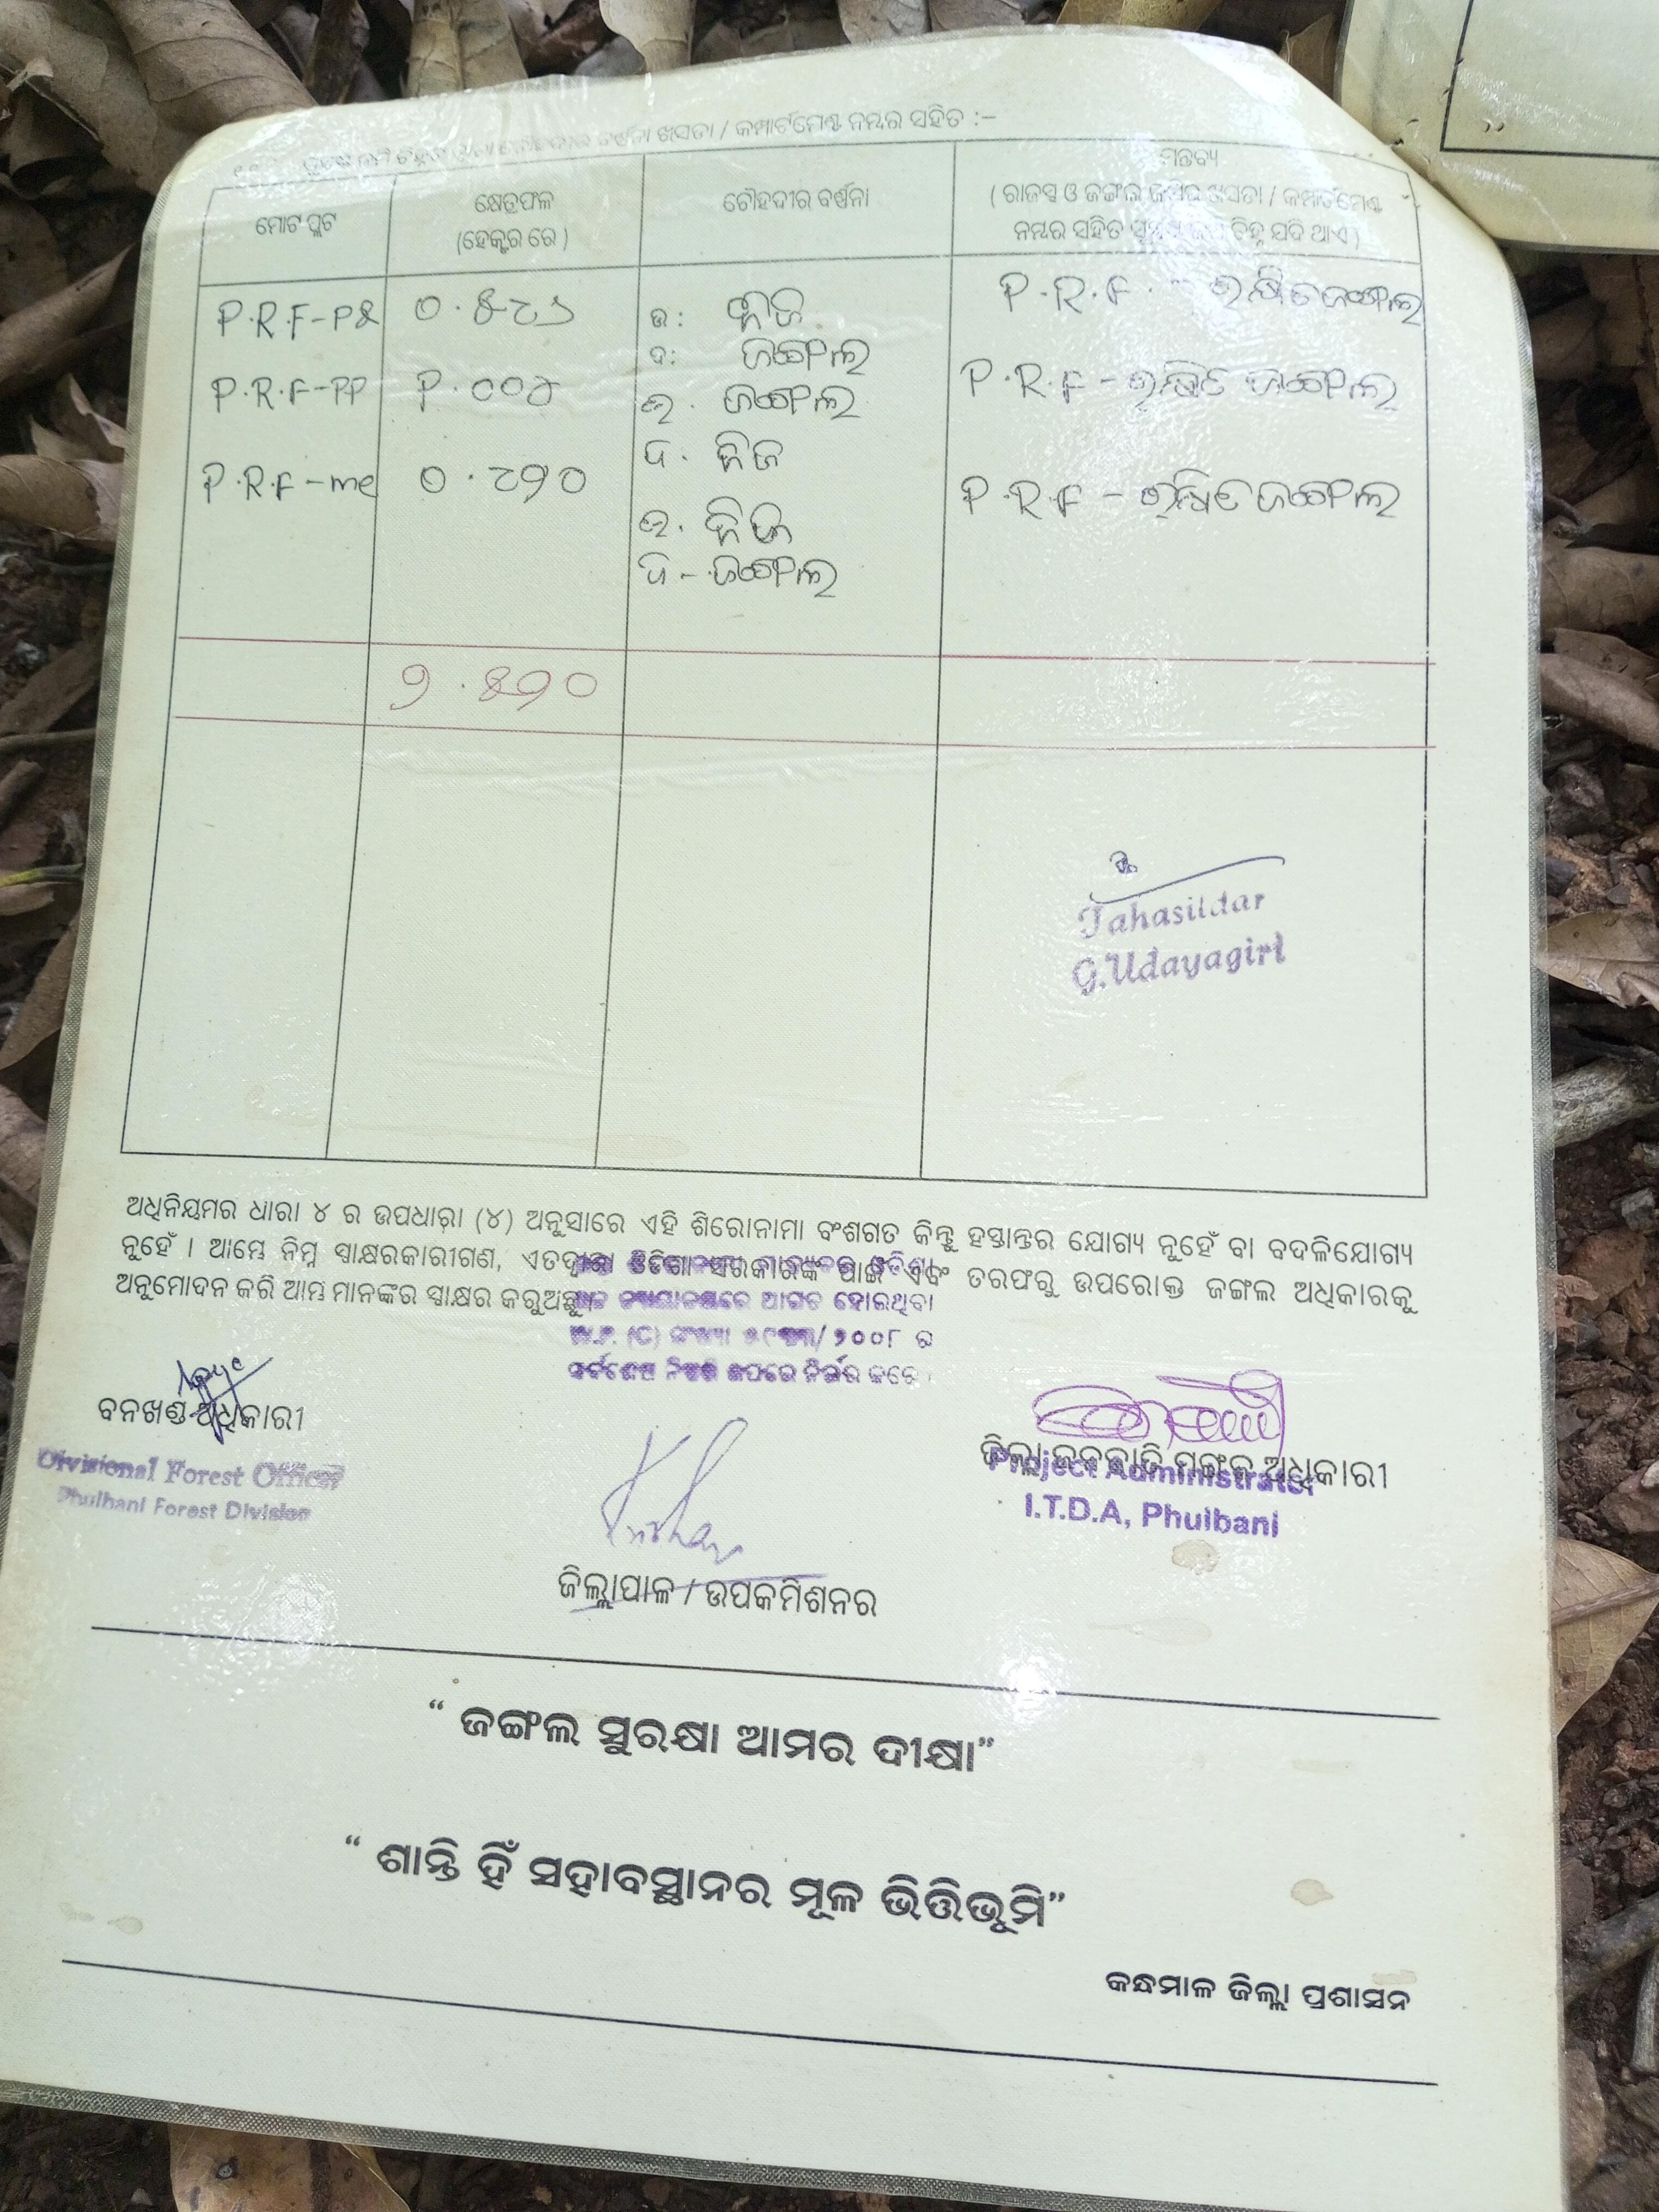 ବର୍ଣ୍ଣନା ଖସଡା / କମ୍ପାର୍ଟମେଣ୍ଟ ନମ୍ବର ସହିତ :–
ମୋଟ ପ୍ଲଟ
କ୍ଷେତ୍ରଫଳ
(ହେକ୍ଟର ରେ )
ଚୌହଦୀର ବର୍ଣ୍ଣନା
ମନ୍ତବ୍ୟ
( ରାଜସ୍ୱ ଓ ଜଙ୍ଗଲ ଜମିର ଖସଡା / କମ୍ପାର୍ଟମେଣ୍ଟ
ନମ୍ବର ସହିତ ଚିହ୍ନ ଯଦି ଥାଏ )
P.R.F ୦.୫୪୬ ଉ: ନିଜ P.R.F. ରକ୍ଷିତ ଜଙ୍ଗଲ
ଦ: ଜଙ୍ଗଲ
P.R.F ଉ. ଜଙ୍ଗଲ P.R.F – ରକ୍ଷିତ ଜଙ୍ଗଲ
ଦ. ନିଜ
P.R.F ୦.୯୭୦ ଉ. ନିଜ P.R.F – ରକ୍ଷିତ ଜଙ୍ଗଲ
ଦ – ଜଙ୍ଗଲ
୨.୫୨୦
Tahasildar
G.Udayagiri
ଅଧିନିୟମର ଧାରା ୪ ର ଉପଧାରା (୪) ଅନୁସାରେ ଏହି ଶିରୋନାମା ବଂଶଗତ କିନ୍ତୁ ହସ୍ତାନ୍ତର ଯୋଗ୍ୟ ନୁହେଁ ବା ବଦଳିଯୋଗ୍ୟ
ନୁହେଁ । ଆମ୍ଭେ ନିମ୍ନ ସ୍ୱାକ୍ଷରକାରୀଗଣ, ଏତଦ୍ୱାରା ଓଡିଶା ସରକାରଙ୍କ ପାଇଁ ଏବଂ ତରଫରୁ ଉପରୋକ୍ତ ଜଙ୍ଗଲ ଅଧିକାରକୁ
ଅନୁମୋଦନ କରି ଆମ୍ଭ ମାନଙ୍କର ସ୍ୱାକ୍ଷର କରୁଅଛୁ ।
ଆଗତ ହୋଇଥିବା
W.P. (C) ସଂଖ୍ୟା /୨୦୦୮ ର
ଉପରେ ନିର୍ଭର କରେ ।
ବନଖଣ୍ଡ ଅଧିକାରୀ
Divisional Forest Officer
Phulbani Forest Division
ଜିଲ୍ଲାପାଳ / ଉପକମିଶନର
ଜିଲ୍ଲା ଜନଜାତି ମଙ୍ଗଳ ଅଧିକାରୀ
Project Administrator
I.T.D.A, Phulbani
“ ଜଙ୍ଗଲ ସୁରକ୍ଷା ଆମର ଦୀକ୍ଷା”
“ ଶାନ୍ତି ହିଁ ସହାବସ୍ଥାନର ମୂଳ ଭିତ୍ତିଭୂମି”
କନ୍ଧମାଳ ଜିଲ୍ଲା ପ୍ରଶାସନ